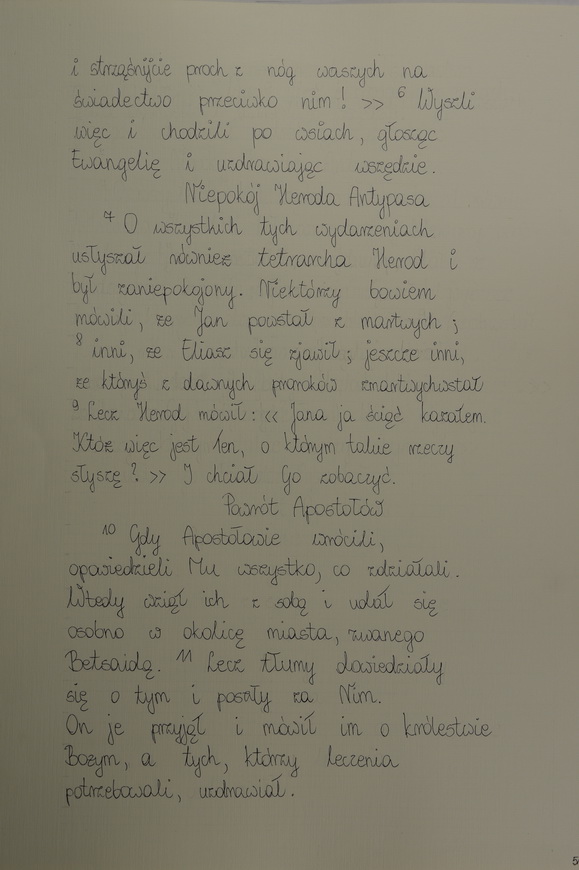 i strząśnijcie proch z nóg waszych na
świadectwo przeciwko nim! >> ⁶ Wyszli
więc i chodzili po wsiach, głosząc
Ewangelię i uzdrawiając wszędzie.
Niepokój Heroda Antypasa
⁷ O wszystkich tych wydarzeniach
usłyszał również tetrarcha Herod i
był zaniepokojony. Niektórzy bowiem
mówili, że Jan powstał z martwych;
⁸ inni, że Eliasz się zjawił; jeszcze inni,
że któryś z dawnych proroków zmartwychwstał
⁹ Lecz Herod mówił: << Jana ja ściąć kazałem.
Któż więc jest Ten, o którym takie rzeczy
słyszę? >> I chciał Go zobaczyć.
Powrót Apostołów
¹⁰ Gdy Apostołowie wrócili,
opowiedzieli Mu wszystko, co zdziałali.
Wtedy wziął ich z sobą i udał się
osobno w okolicę miasta, zwanego
Betsaidą. ¹¹ Lecz tłumy dowiedziały
się o tym i poszły za Nim.
On je przyjął i mówił im o królestwie
Bożym, a tych, którzy leczenia
potrzebowali, uzdrawiał.
5